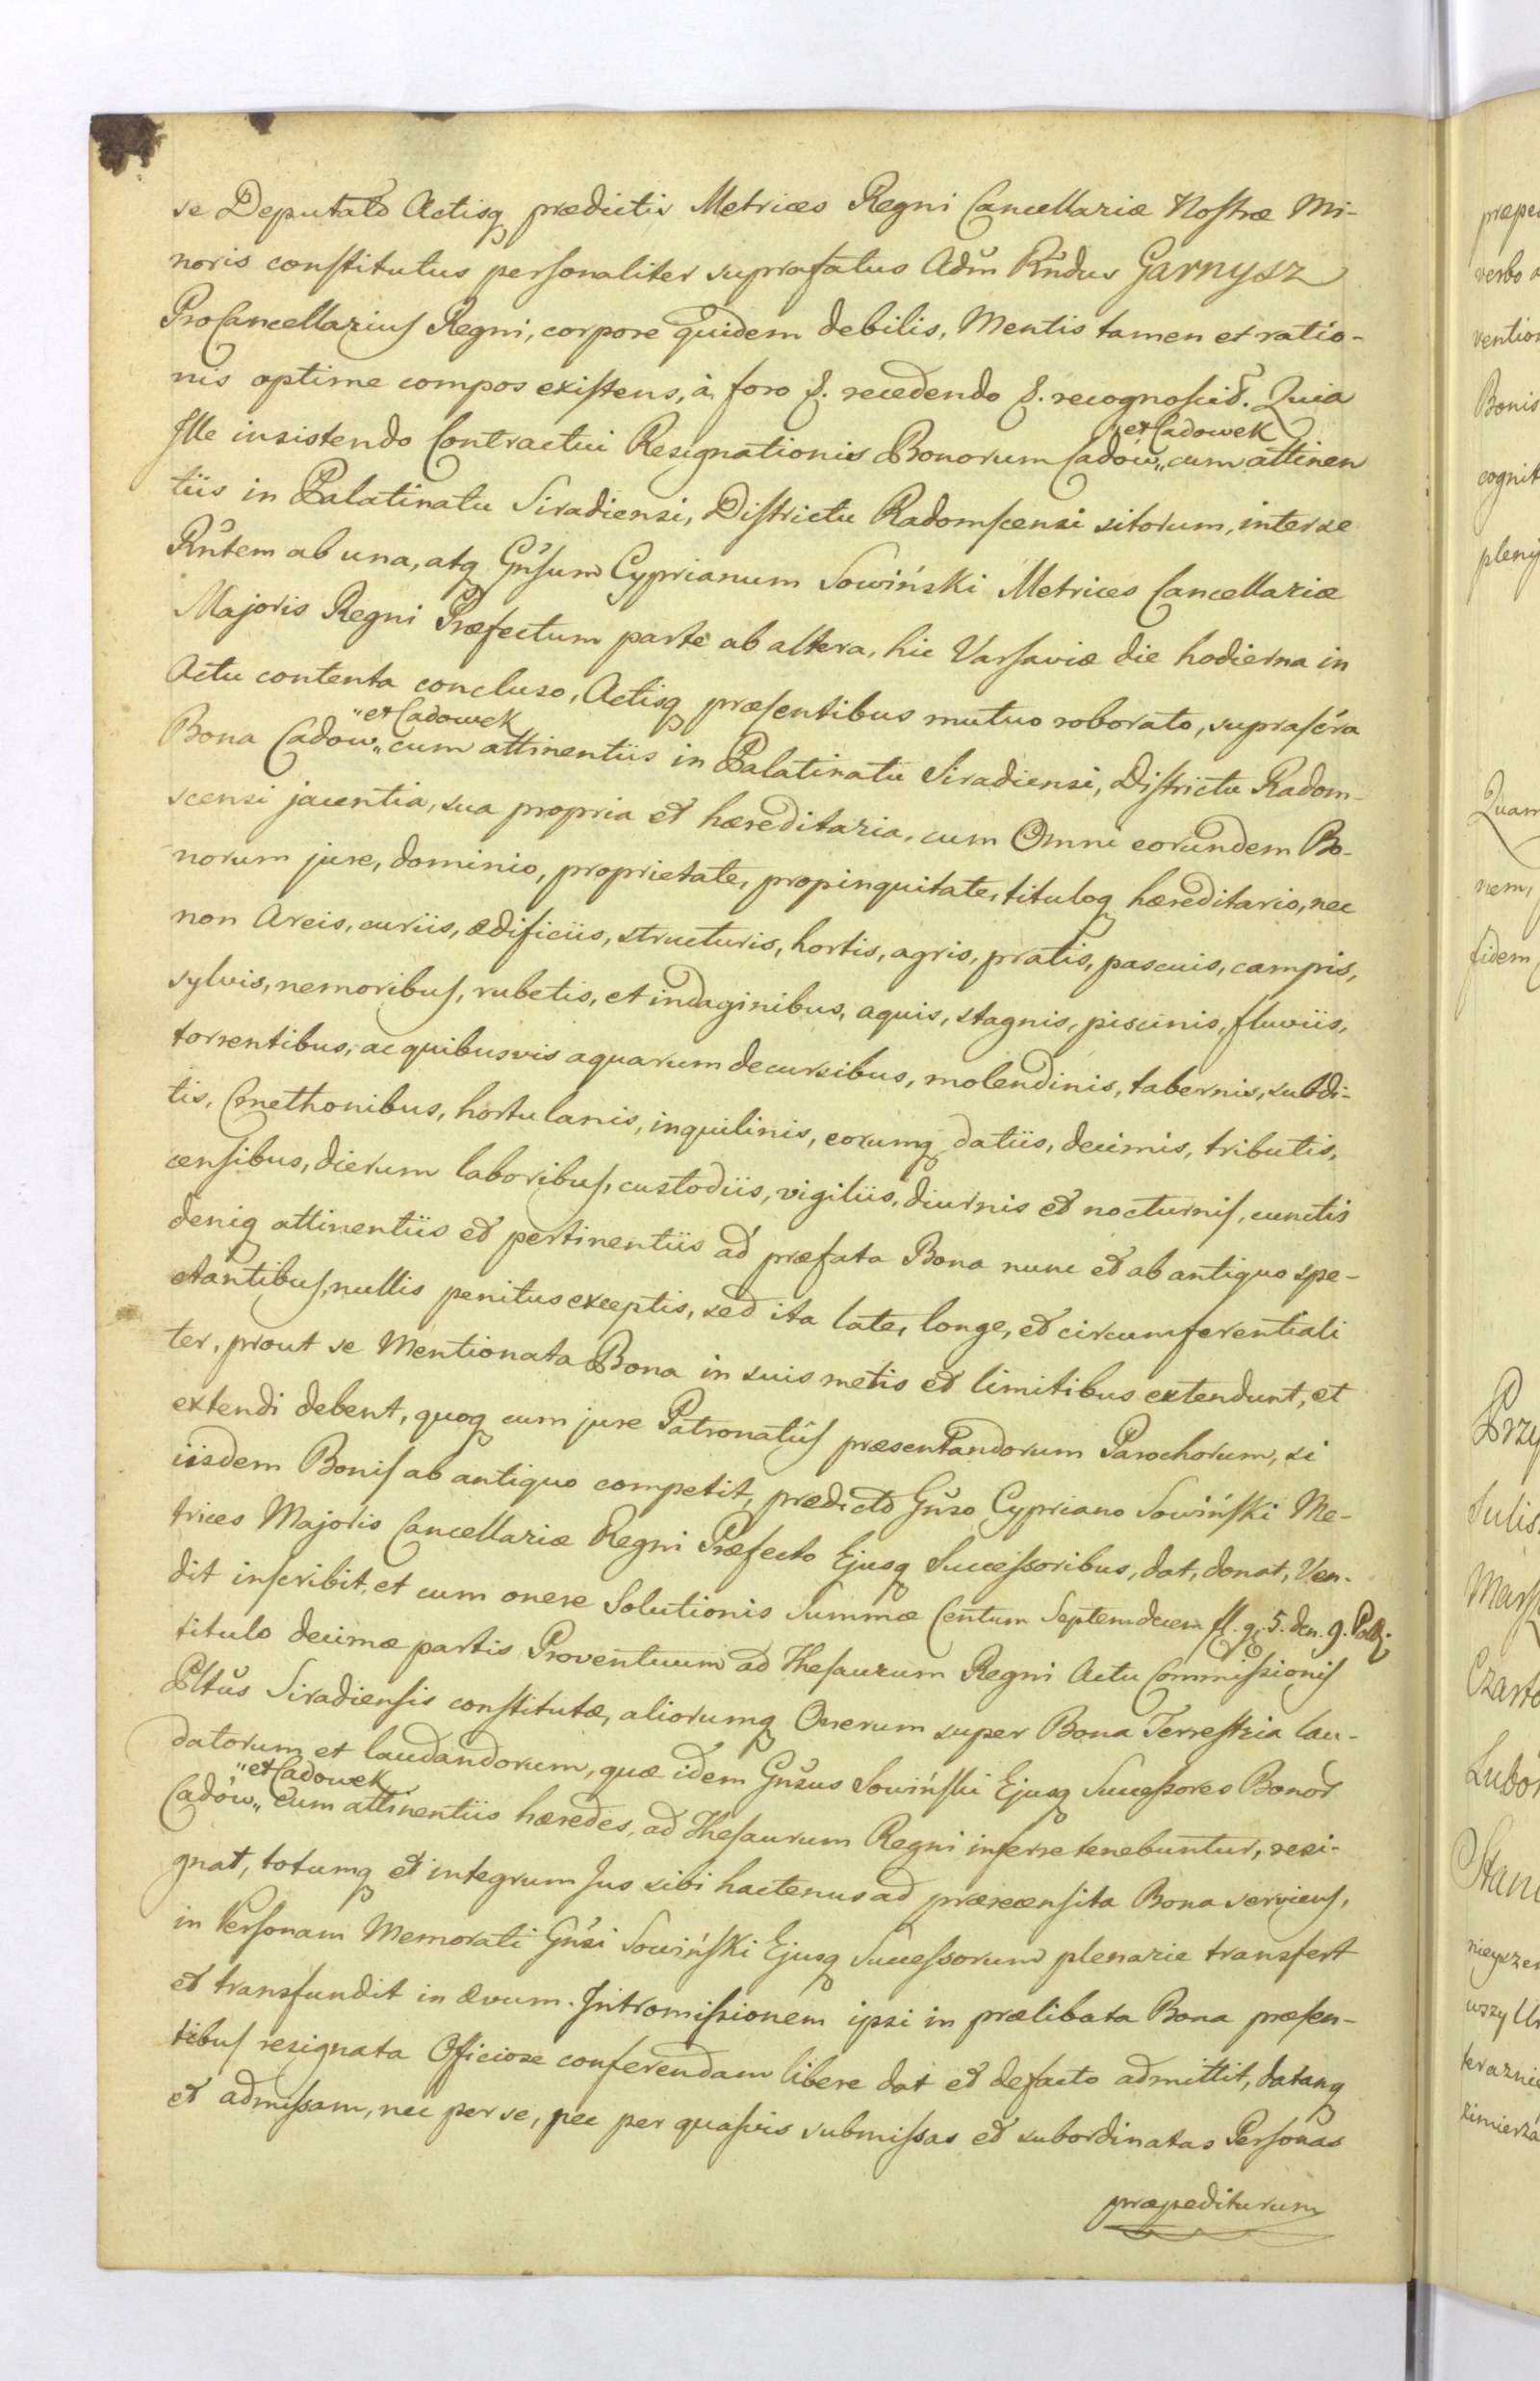 se Deputatd Actisq prædictis Metrices Regni Cancellariæ Nostræ Mi-
noris constitutus personaliter suprafatus Adm Rndus Garnysz
ProCancellarius Regni, corpore quidem debilis, Mentis tamen et ratio-
nis optime compos existens, à foro &. recedendo &. recognoscid. Quia
Ille insistendo Contractui Resignationis Bonorum Cadów „et Cadowek„ cum attinen
tiis in Palatinatu Siradiensi, Districtu Radomscensi sitorum, inter se
Rntem ab una, atq Gnsum Cyprianum Sowiński Metrices Cancellariæ
Majoris Regni Præfectum parte ab altera, hic Varsaviæ die hodierna in
Actu contenta concluso, Actisq præsentibus mutuo roborato, suprascra
Bona Cadow „et Cadowek„ cum attinentiis in Palatinatu Siradiensi, Districtu Radom-
scensi jacentia, sua propria et hæreditaria, cum Omni eorundem Bo-
norum jure, dominio, proprietate, propinquitate, tituloq hæreditario, nec
non Areis, curiis, ædificiis, structuris, hortis, agris, pratis, pascuis, campis,
sylvis, nemoribus, rubetis, et indaginibus, aquis, stagnis, piscinis, fluviis,
torrentibus, ac quibusvis aquarum decursibus, molendinis, tabernis, subdi-
tis, Cmethonibus, hortulanis, inquilinis, eorumq datiis, decimis, tributis,
censibus, dierum laboribus, custodiis, vigiliis, diurnis et nocturnis, cunctis
deniq attinentiis et pertinentiis ad præfata Bona nunc et ab antiquo spe-
ctantibus, nullis penitus exceptis, sed ita late, longe, et circumferentiali
ter, prout se Mentionata Bona in suis metis et limitibus extendunt, et
extendi debent, quoq cum jure Patronatûs præsentandorum Parochorum, si
iisdem Bonis ab antiquo competit, prædicto Gnso Cypriano Sowiński Me-
trices Majoris Cancellariæ Regni Præfecto Ejusq Successoribus, dat, donat, Ven-
dit inscribit, et cum onere Solutionis Summæ Centum Septemdecem fl. g. 5. den. 9. Polli
titulo decimæ partis Proventuum ad Thesaurum Regni Actu Commissionis
Pltus Siradiensis constitutæ, aliorumq Onerum super Bona Terrestria lau-
datorum et laudandorum, quæ idem Gnsus Sowiński Ejusq Successores Bonor
Cadów „et Cadowek„ cum attinentiis hæredes, ad Thesaurum Regni inferre tenebuntur, resi-
gnat, totumq et integrum Jus sibi hactenus ad præecensita Bona serviens,
in Personam Memorati Gnsi Sowiński Ejusq Successorum plenarie transfert
et transfundit in ævum. Intromissionem ipsi in prælibata Bona præsen-
tibus resignata Officiose conferendam libere dat et defacto admittit, datamq
et admissam, nec per se, nec per quasvis submissas et subordinatas Personas
præpediturum